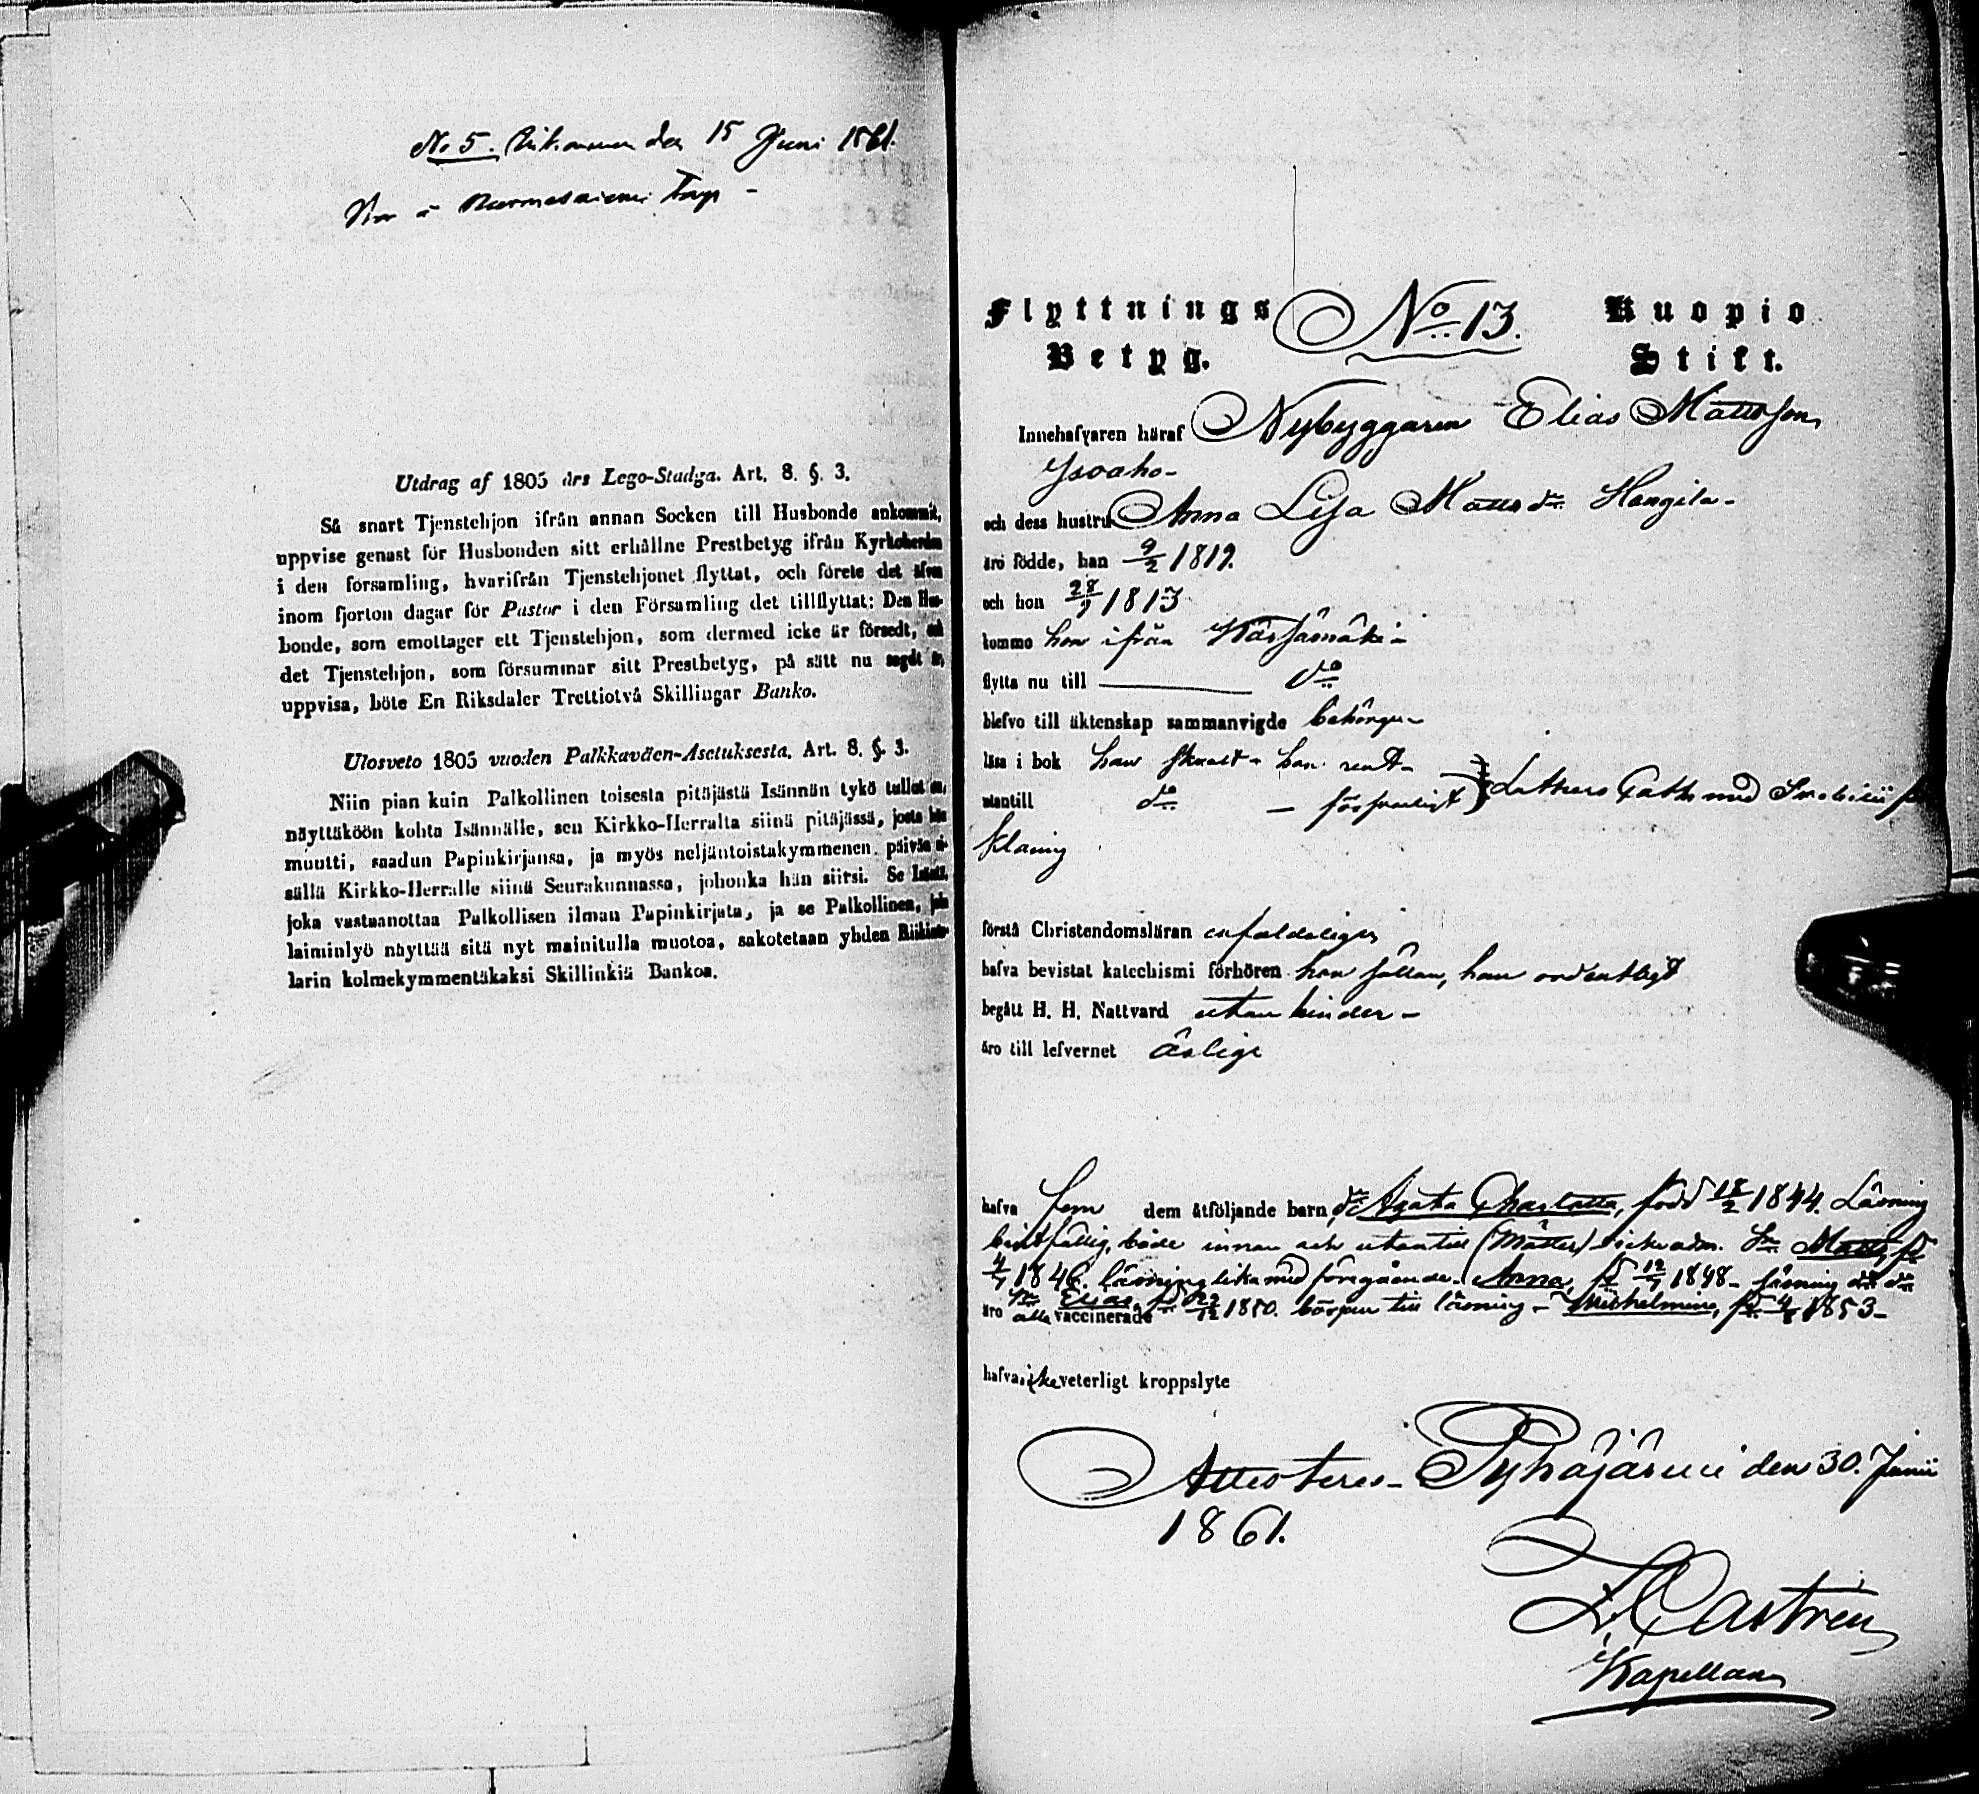 No 5. den 15 Juni 1861.
Utdrag af 1805 års Lego-Stadga. Art. 8. §. 3.
Så snart Tjenstehjon ifrån annan Socken till Husbonde ankommit,
uppvise genast för Husbonden sitt erhållne Prestbetyg ifrån Kyrkoherden
i den församling, hvarifrån Tjenstehjonet flyttat, och förete det äfven
inom fjorton dagar för Pastor i den Församling det tillflyttat: Den Hus-
bonde, som emottager ett Tjenstehjon, som dermed icke är försedt, och
det Tjenstehjon, som försummar sitt Prestbetyg, på sätt nu sagdt är,
uppvisa, böte En Riksdaler Trettiotvå Skillingar Banko.
Ulosveto 1805 vuoden Palkkaväen-Asetuksesta. Art. 8. §. 3.
Niin pian kuin Palkollinen toisesta pitäjästä Isännän tykö tullut on,
näyttäköön kohta Isännälle, sen Kirkko-Herralta siinä pitäjässä, josta hän
muutti, saadun Papinkirjansa, ja myös neljäntoistakymmenen päivän si-
sällä Kirkko-Herralle siinä Seurakunnassa, johonka hän siirsi. Se Isäntä,
joka vastaanottaa Palkollisen ilman Papinkirjata, ja se Palkollinen, joka
laiminlyö näyttää sitä nyt mainitulla muotoa, sakotetaan yhden Riikinta-
larin kolmekymmentäkaksi Skillinkiä Bankoa.
Flyttnings No 13. Kuopio
Betyg. Stift.
Innehafvaren häraf Nybyggaren Elias Mattsson
Isoaho-
och dess hustru Anna Lisa Mattsdr Hangila-
äro födde, han 9/2 1819.
och hon 28/9 1813
kommo hon ifrån Kärsämäki-
flytta nu till do
blefvo till äktenskap sammanvigde behörigen-
läsa i bok han hon rent-
utantill do - försvarligt Luthers Cath. med Svebilii för
klaring
förstå Christendomsläran enfaldeligen
hafva bevistat katechismi förhören han sällan, hon ordentligt
begått H. H. Nattvard utan hinder-
äro till lefvernet ärlige
hafva fem dem åtföljande barn, dr Agata Charlotta, född 18/2 1844. Läsning
bristfällig, både innan och utantill Sn Matts, fd
4/7 1846. läsning lika med föregående. Anna, fd 12/7 1848- läsning do do
Sn Elias, fd 29/12 1850. början till läsning- Wilhelmina, fd 4/8 1853-
äro alla vaccinerade
hafva icke veterligt kroppslyte
Attesteras- Pyhäjärvi den 30. Junii
1861.
Castrén
Kapellan